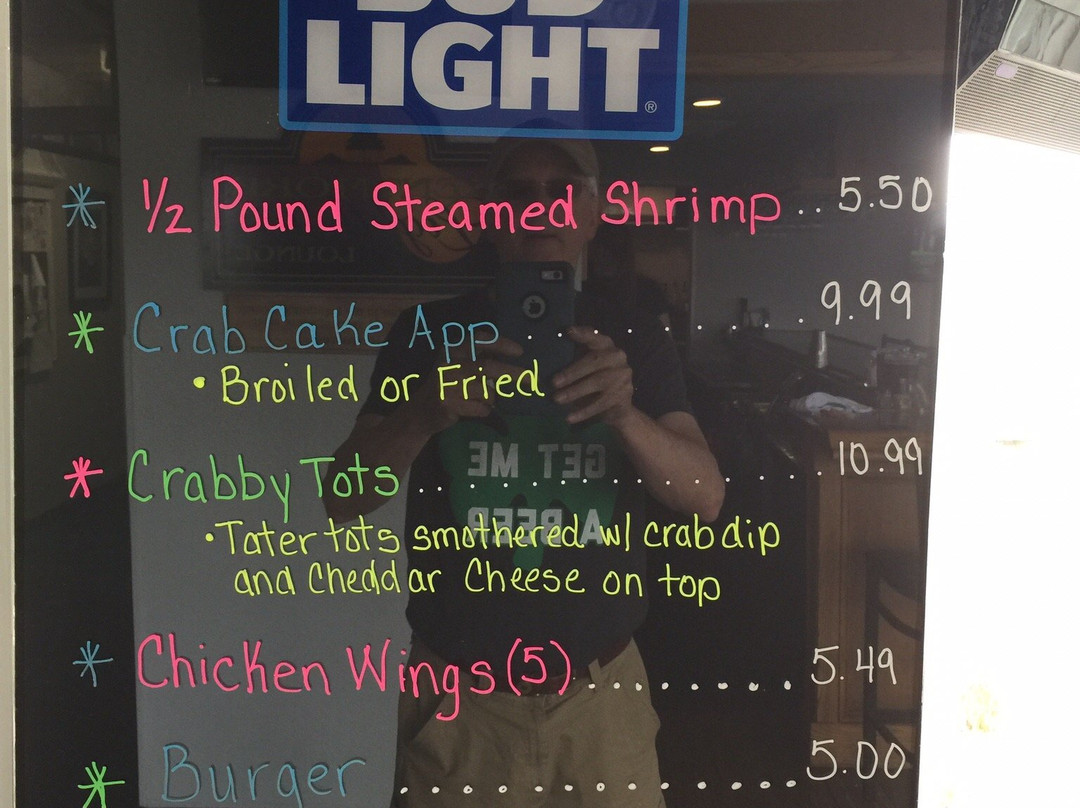 BUD
LIGHT®
* ½ Pound Steamed Shrimp .. 5.50
* Crab Cake App . . . . . . . . . 9.99
• Broiled or Fried
* Crabby Tots . . . . . . . . . . . . 10.99
• Tater tots smothered w/ crab dip
and Cheddar Cheese on top
* Chicken Wings (5) . . . . . . . . 5.49
* Burger . . . . . . . . . . . . . . 5.00
GET ME
A BEER
LOUNGE